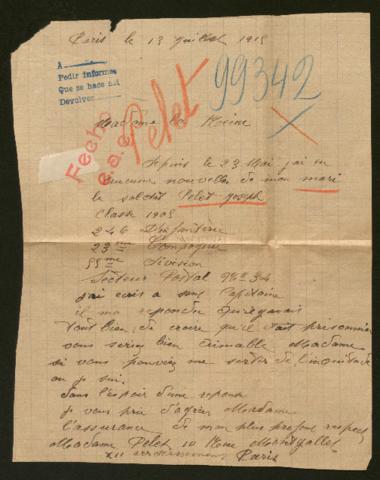 Paris le 13 juillet 1915
A
Pedir informes
Que se hace asi
Devolver
Pelet
99342
Fecha
Madame la Reine
Depuis le 23 Mai j'ai eu
aucune nouvelles de mon mari
le soldat Pelet Joseph
Classe 1905
246 D'infanterie
23me Compagnie
55me Division
Secteur Postal
j'ai ecris a son Capitaine
il ma repondu
tout lieu de croire qu'il soit prisonnier
vous seriez bien aimable Madame
si vous pouviez me sortir de l'
ou je suis
dans l'espoir d'une reponse
je vous prie d'agréer Madame
l'assurance de mon plus profond respect
Madame Pelet 10 Rue
XII arrondissement Paris